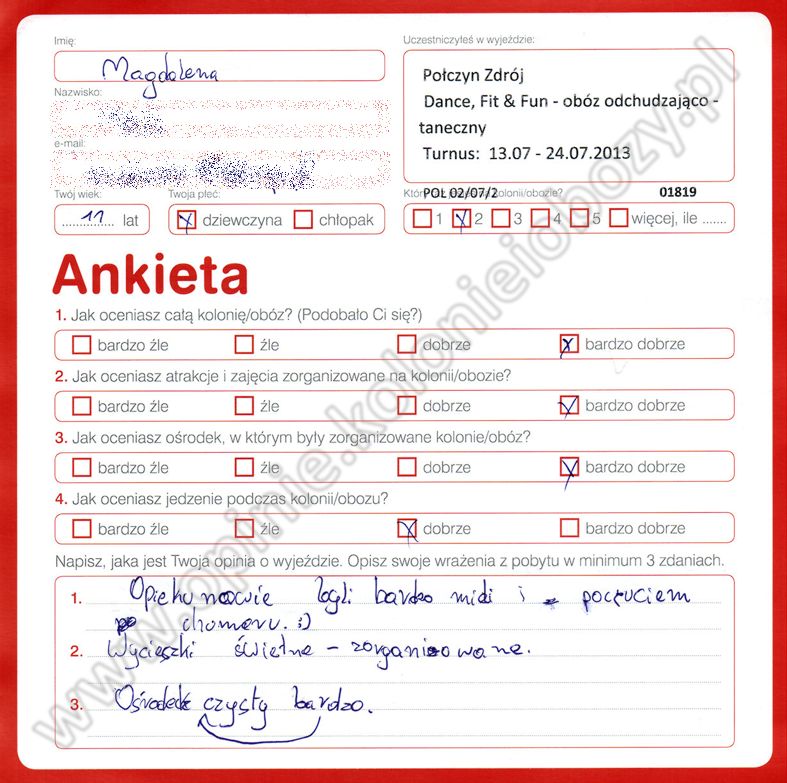 Imię:
Magdalena
Nazwisko:
e-mail:
Twój wiek:
11 lat
Twoja płeć:
dziewczyna chłopak
Uczestniczyłeś w wyjeździe:
Połczyn Zdrój
Dance, Fit & Fun - obóz odchudzająco -
taneczny
Turnus: 13.07 - 24.07.2013
POL 02/07/2 kolonii/obozie? 01819
1 2 3 4 5 więcej, ile .......
Ankieta
1. Jak oceniasz całą kolonię/obóz? (Podobało Ci się?)
bardzo źle źle dobrze bardzo dobrze
2. Jak oceniasz atrakcje i zajęcia zorganizowane na kolonii/obozie?
bardzo źle źle dobrze bardzo dobrze
3. Jak oceniasz ośrodek, w którym były zorganizowane kolonie/obóz?
bardzo źle źle dobrze bardzo dobrze
4. Jak oceniasz jedzenie podczas kolonii/obozu?
bardzo źle źle dobrze bardzo dobrze
Napisz, jaka jest Twoja opinia o wyjeździe. Opisz swoje wrażenia z pobytu w minimum 3 zdaniach.
1. Opiekunowie bardzo mili i poczuciem
chumoru. :)
2. Wycieszki świetne - zorganizowane.
3. Ośrodek czysty bardzo.
www.opinie.kolonieiobozy.pl